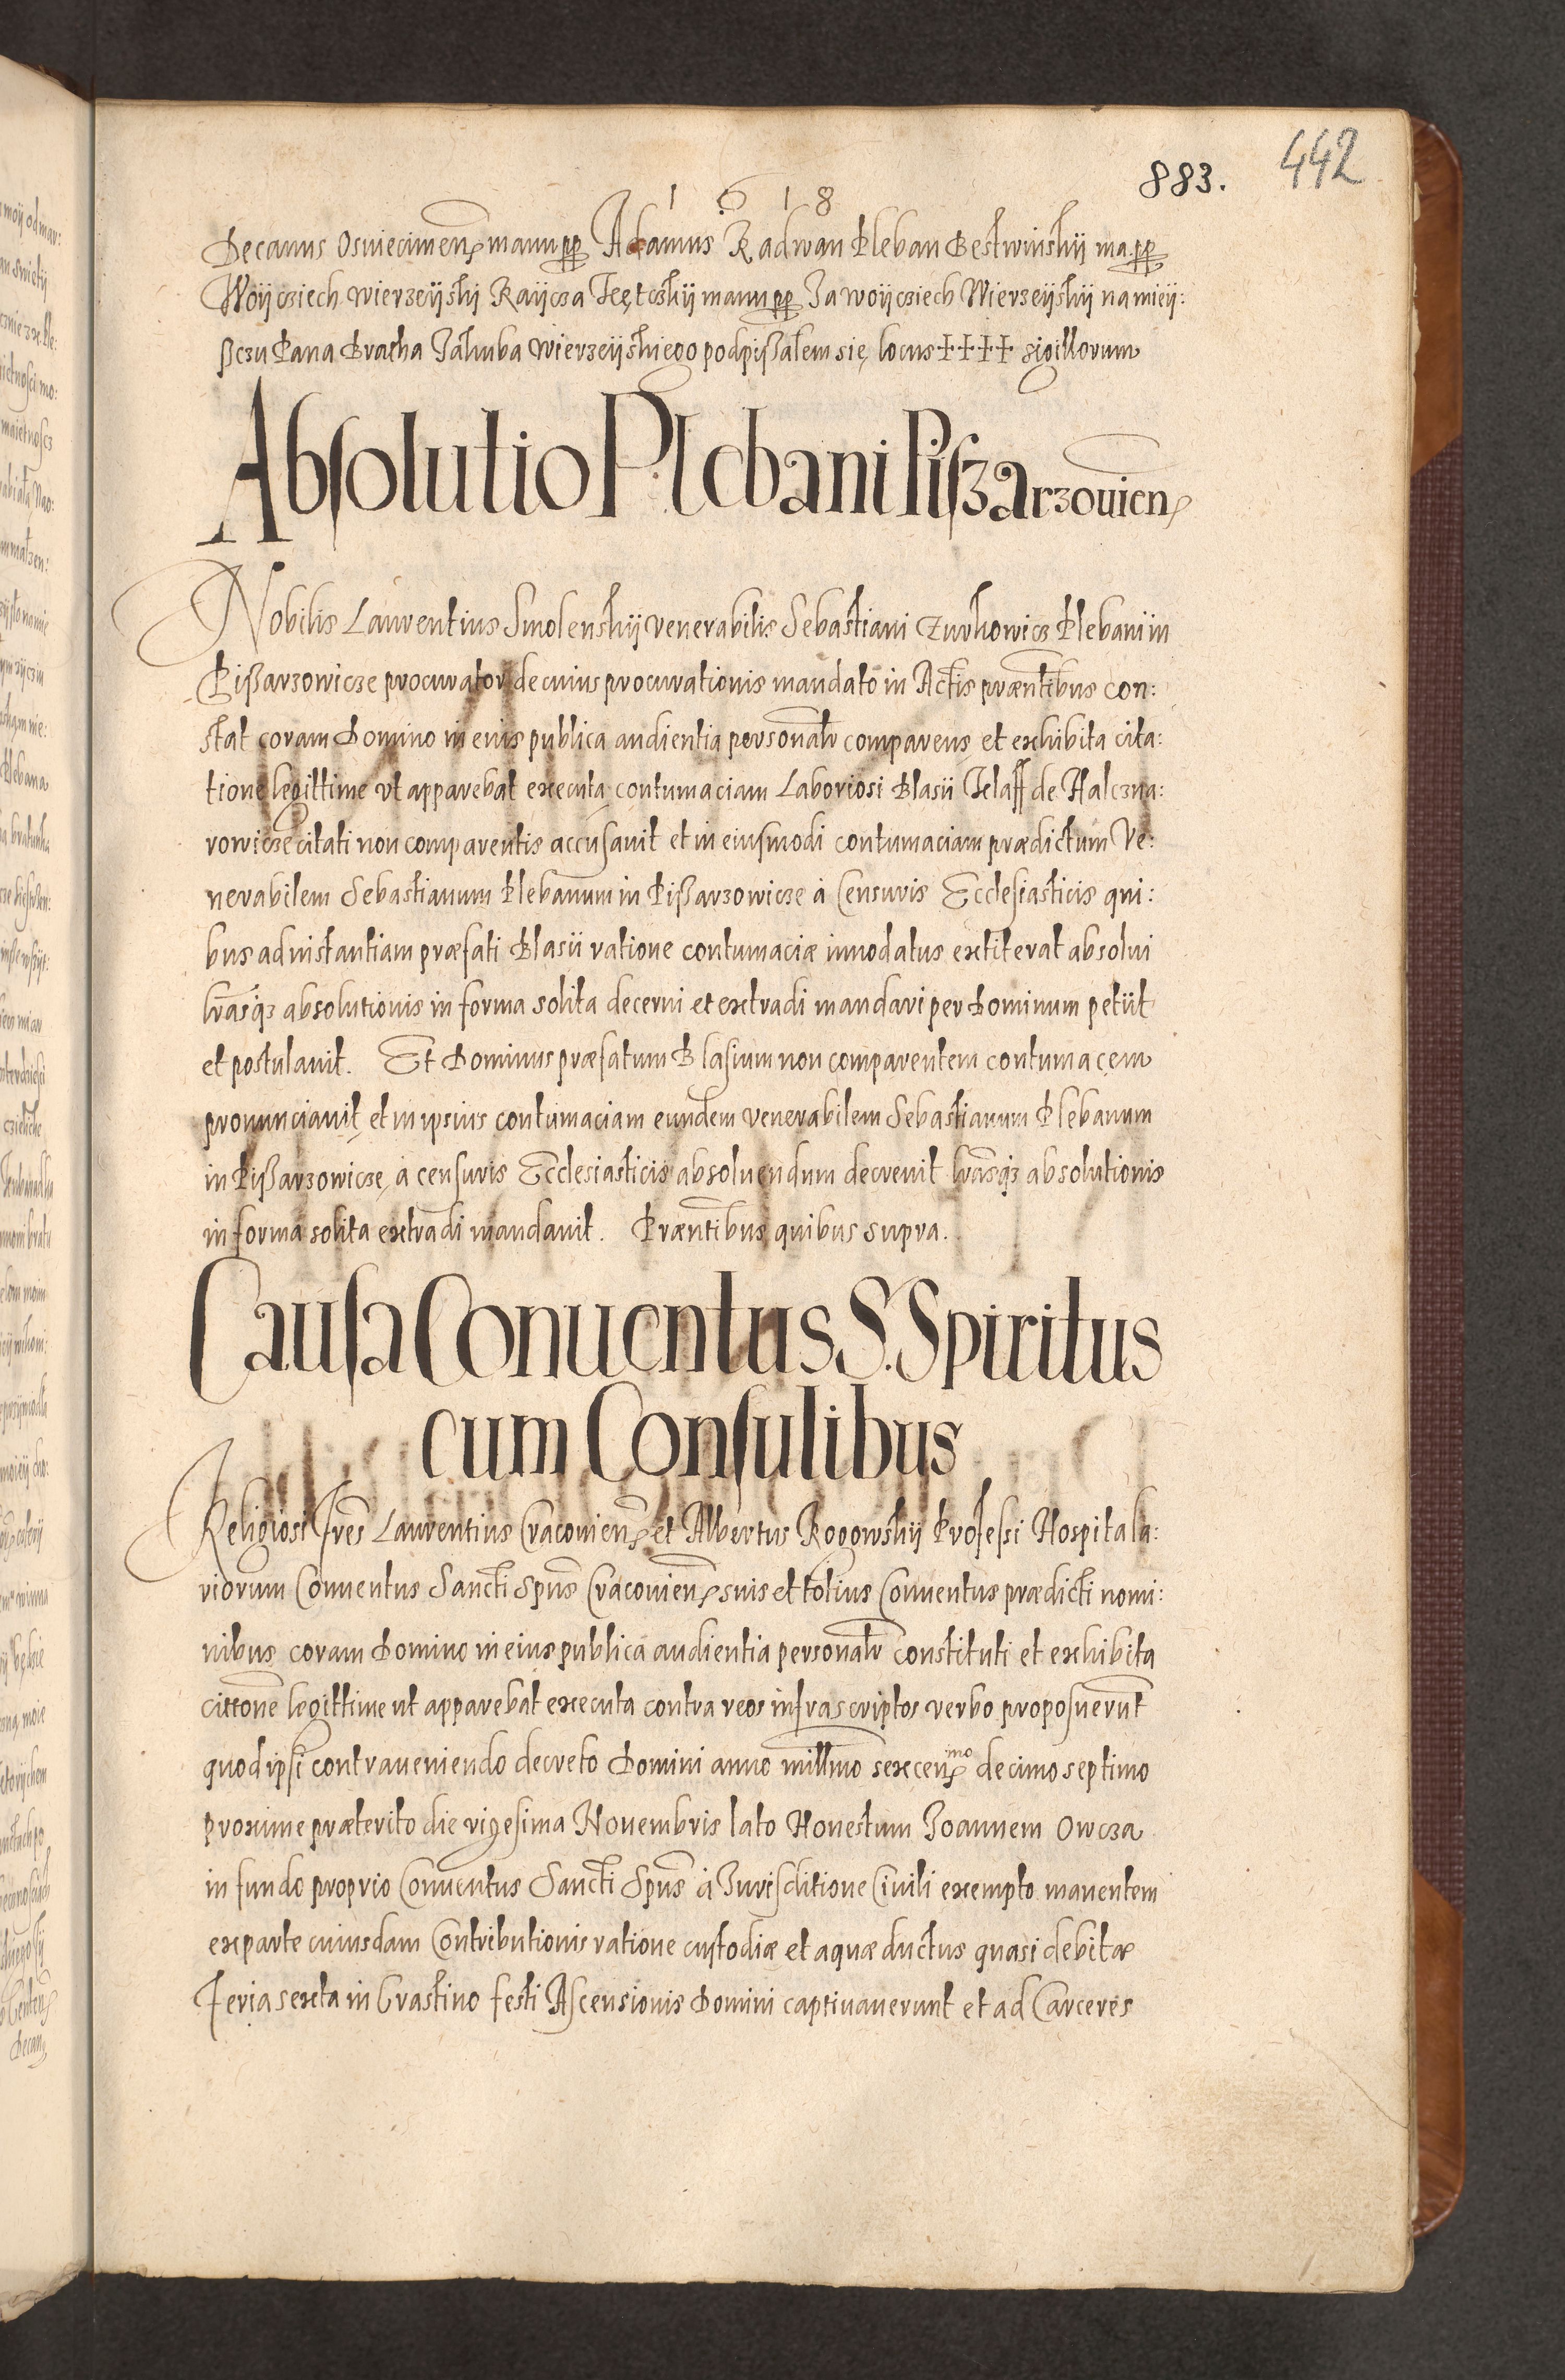 442
883.
1 6 1 8
Decanus Osviecimen̄ manu pp Adamus Radwan Pleban Bestwinskij ma. pp
Woijcziech Wierzeijskij Raijcza manu pp Ja Woijcziech Wierzeijskij na mieij:
ßczu Pana Bratha Jakuba Wierzeijskiego podpißałem się, locus ++++ sigillorum
Absolutio Plebani Piszarzouien̄
Nobilis Laurentius Smolenskij venerabilis Sebastiani Zurkowicz Plebani in
Pißarzowicze procurator de cuius procurationis mandato in Actis præntibus con:
stat coram Domino in eius publica audientia personalr comparens et exhibita cita:
tione legittime vt apparebat executa contumaciam Laboriosi Blasii de Halczna:
rowicze citati non comparentis accusauit et in eiusmodi contumaciam prædictum Ve:
nerabilem Sebastianum Plebanum in Pißarzowicze à Censuris Ecclesiasticis qui:
bus ad instantiam præfati Blasii ratione contumaciæ innodatus extiterat absolui
lrāsq₃ absolutionis in forma solita decerni et extradi mandari per Dominum petiit
et postulauit. Et Dominus præfatum Blasium non comparentem contumacem
pronunciauit, et in ipsius contumaciam eundem venerabilem Sebastianum Plebanum
in Pißarzowicze, à censuris Ecclesiasticis absoluendum decreuit lrāsq₃ absolutionis
in forma solita extradi mandauit. Præntibus quibus supra.
Causa Conuentus S. Spiritus
cum Consulibus
Religiosi Frēs Laurentius Cracouien̄ et Albertus Rogowskij Professi Hospitala:
riorum Conuentus Sancti Spūs Cracouien̄ suis et totius Conuentus prædicti nomi:
nibus coram Domino in eius publica audientia personalr constituti et exhibita
cittone legittime ut apparebat executa contra reos infrascriptos verbo proposuerūt
quod ipsi contraueniendo decreto Domini anno millmo sexcen̄ᵐᵒ decimo septimo
proxime præterito die vigesima Nouembris lato Honestum Joannem Owcza
in fundo proprio Conuentus Sancti Spūs à Jurisditione Ciuili exempto manentem
ex parte cuiusdam Contributionis ratione custodiæ et aquæ ductus quasi debitæ
Feria sexta in Crastino festi Ascensionis Domini captiuauerunt et ad Carceres